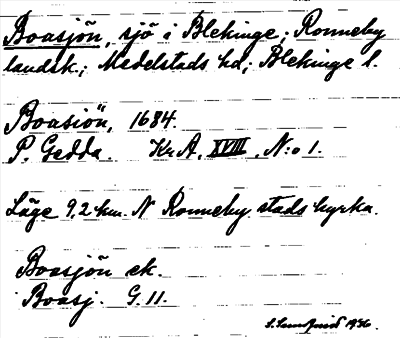 Boasjön, sjö i Blekinge; Ronneby
landsk.; Medelstads hd; Blekinge l.
Boasiön, 1684.
P. Gedda. KrA, XVIII, N:o 1.
Läge 9,2 km. N Ronneby stads kyrka.
Boasjön ek.
Boasj. G. 11.
1936